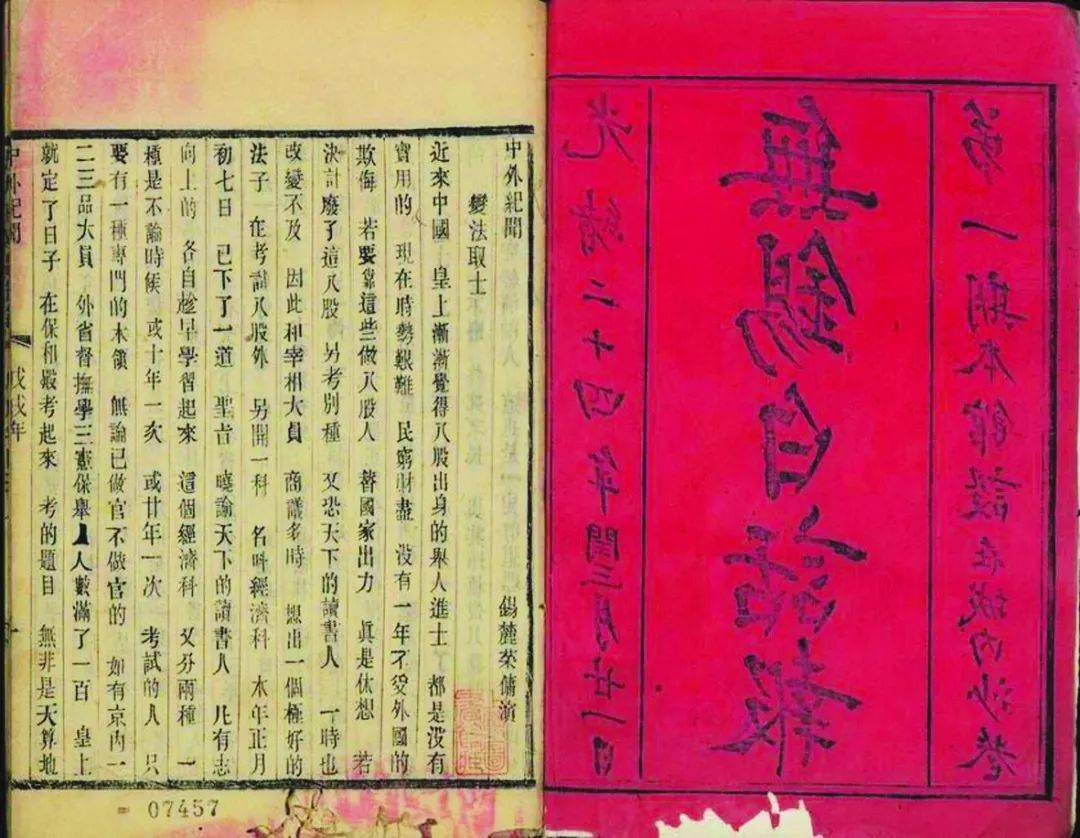 第一期本館設在城內沙巷
無錫白話報
光緒二十四年閏三月廿一日
中外紀聞 錫麓榮傭演
變法取士
近來中國 皇上漸漸覺得八股出身的舉人進士 都是沒有
實用的 現在時勢艱難 民窮財盡 沒有一年不受外國的
欺侮 若要靠這些做八股人 替國家出力 眞是休想 若
決計廢了這八股 另考別種 又恐天下的讀書人 一時也
改變不及 因此和宰相大員 商議多時 想出一個極好的
法子 在考試八股外 另開一科 名叫經濟科 本年正月
初七日 已下了一道 聖旨 曉諭天下的讀書人 凡有志
向上的 各自趁早學習起來 這個經濟科 又分兩種 一
種是不論時候 或十年一次 或廿年一次 考試的人 只
要有一種專門的本領 無論已做官不做官的 如有京內一
二三品大員 外省督撫學三憲保舉 人數滿了一百 皇上
就定了日子 在保和殿考起來 考的題目 無非是天算地
中外紀聞 戊戌年
07457